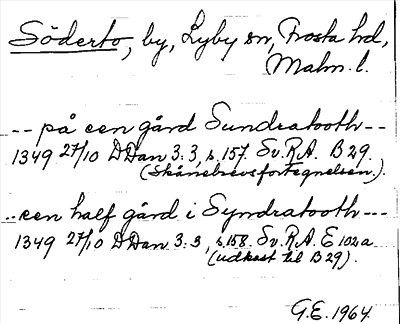 Söderto, by, Lyby sn, Frosta hd,
Malm. l.
-- på een gård Sundratooth --
1349 27/10 D Dan 3:3, s. 157. Sv. R.A. B 29.
(Skånebrevsfortegnelsen.)
-- een half gård i Syndratooth ---
1349 27/10 D Dan. 3:3, s. 158. Sv. R.A. E 102a
(udkast til B 29).
G.E. 1964.